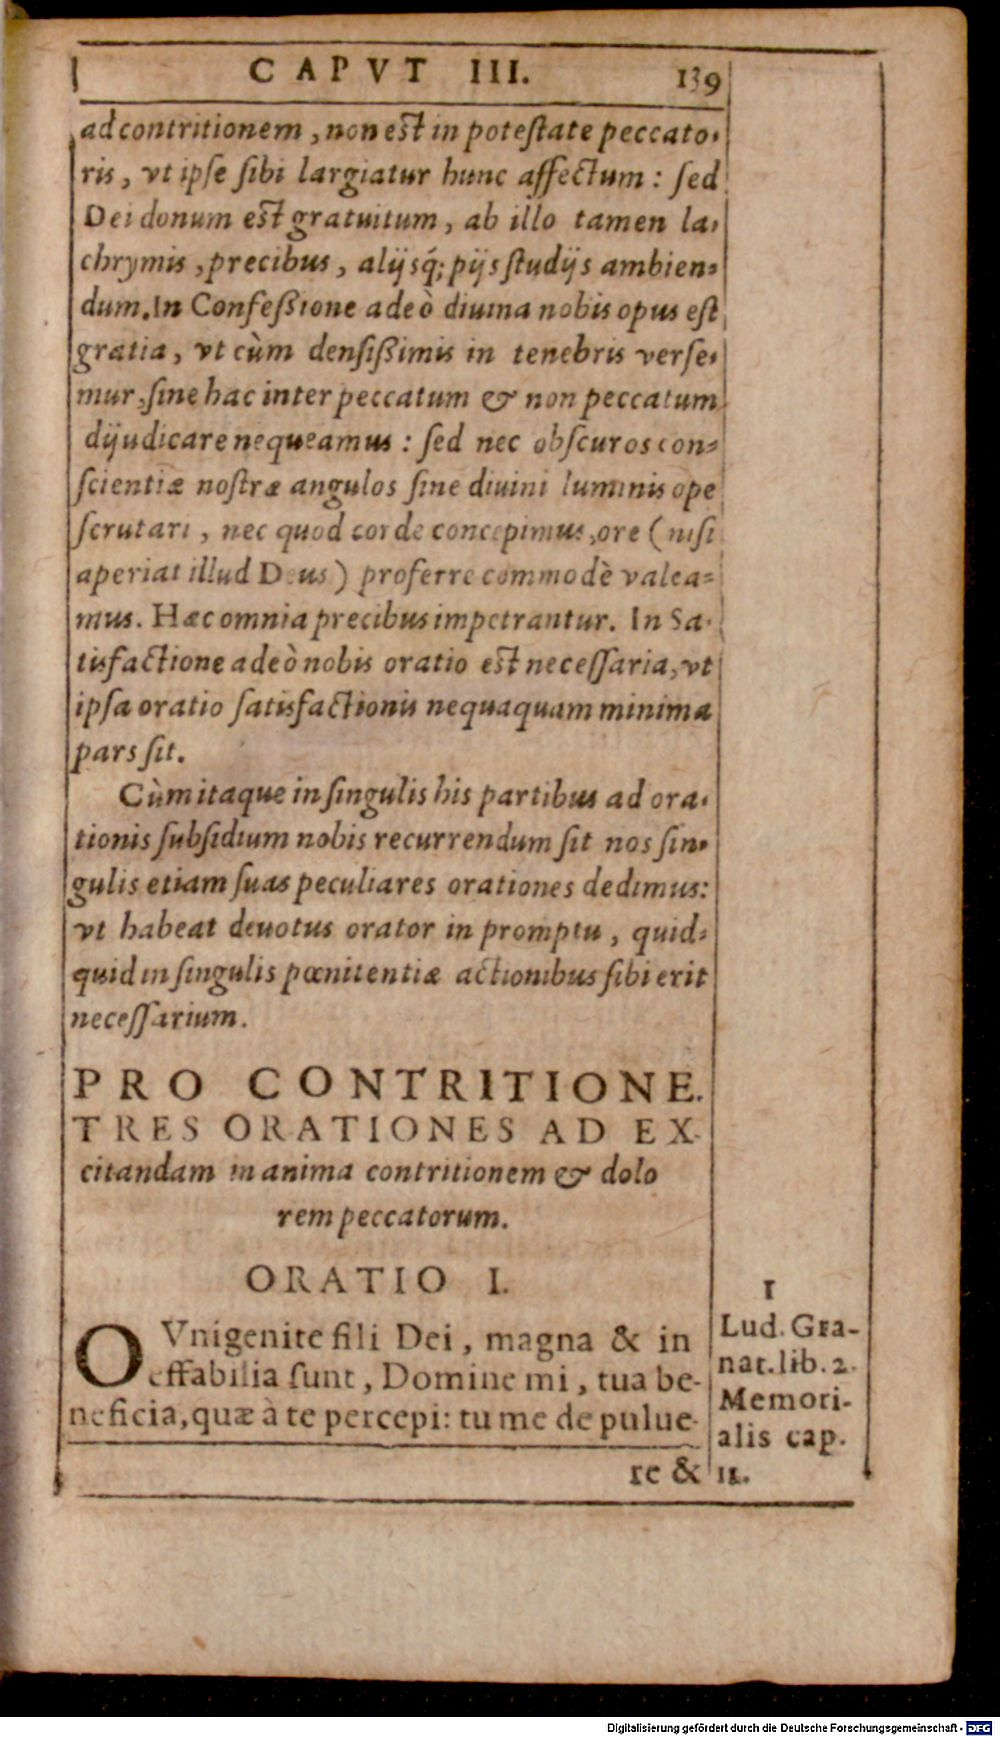 CAPVT III. 139
ad contritionem, non est in potestate peccato-
ris, vt ipse sibi largiatur hunc affectum: sed
Dei donum est gratuitum, ab illo tamen la-
chrymis, precibus, alijsq́; pijs studijs ambien-
dum. In Confeßione adeò diuina nobis opus est
gratia, vt cùm densißimis in tenebris verse-
mur, sine hac inter peccatum & non peccatum
dijudicare nequeamus: sed nec obscuros con-
scientiæ nostræ angulos sine diuini luminis ope
scrutari, nec quod corde concepimus, ore (nisi
aperiat illud Deus) proferre commodè valea-
mus. Hæc omnia precibus impetrantur. In Sa-
tisfactione adeò nobis oratio est necessaria, vt
ipsa oratio satisfactionis nequaquam minima
pars sit.
Cùm itaque in singulis his partibus ad ora-
tionis subsidium nobis recurrendum sit nos sin-
gulis etiam suas peculiares orationes dedimus:
vt habeat deuotus orator in promptu, quid-
quid in singulis pœnitentiæ actionibus sibi erit
necessarium.
PRO CONTRITIONE.
TRES ORATIONES AD EX-
citandam in anima contritionem & dolo
rem peccatorum.
ORATIO I.
O Vnigenite fili Dei, magna & in
effabilia sunt, Domine mi, tua be-
neficia, quæ à te percepi: tu me de pulue-
re &
1
Lud. Gra-
nat. lib. 2.
Memori-
alis cap.
11.
Digitalisierung gefördert durch die Deutsche Forschungsgemeinschaft - DFG